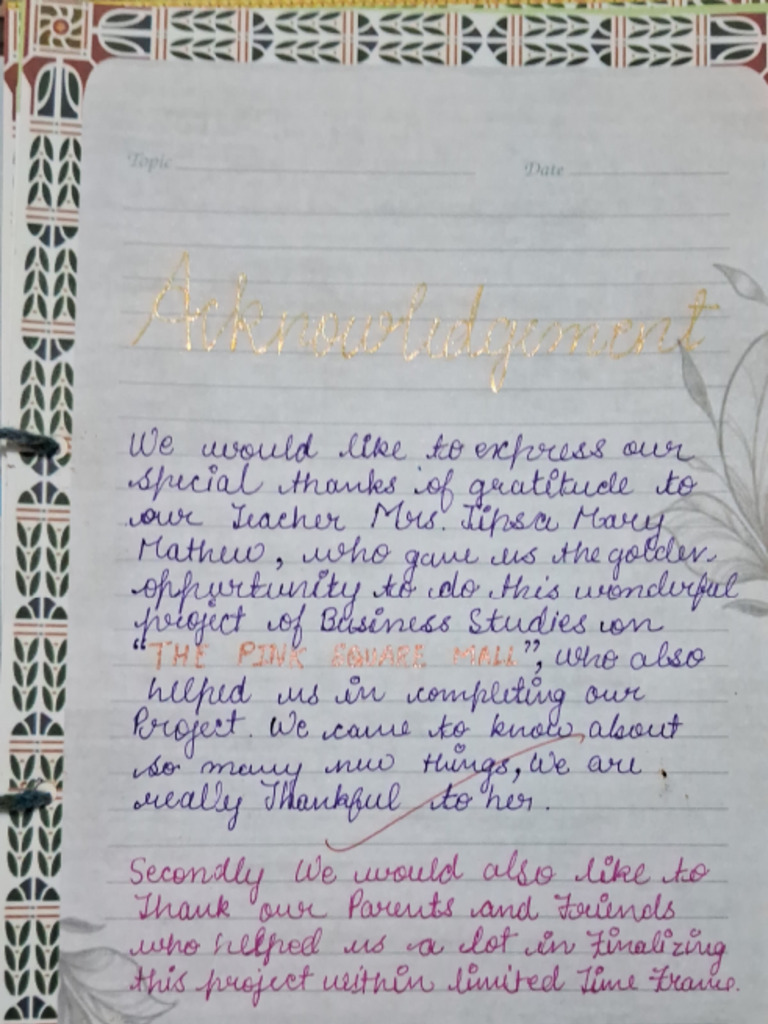 Topic Date
Acknowledgement
We would like to express our
special thanks of gratitude to
our Teacher Mrs. Jipsa Mary
Mathew, who gave us the golden
oppurtunity to do this wonderful
project of Business Studies on
"THE PINK SQUARE MALL", who also
helped us in completing our
Project. We came to know about
so many new things, We are
really Thankful to her.
Secondly We would also like to
Thank our Parents and Friends
who helped us a lot in Finalizing
this project within limited Time Frame.